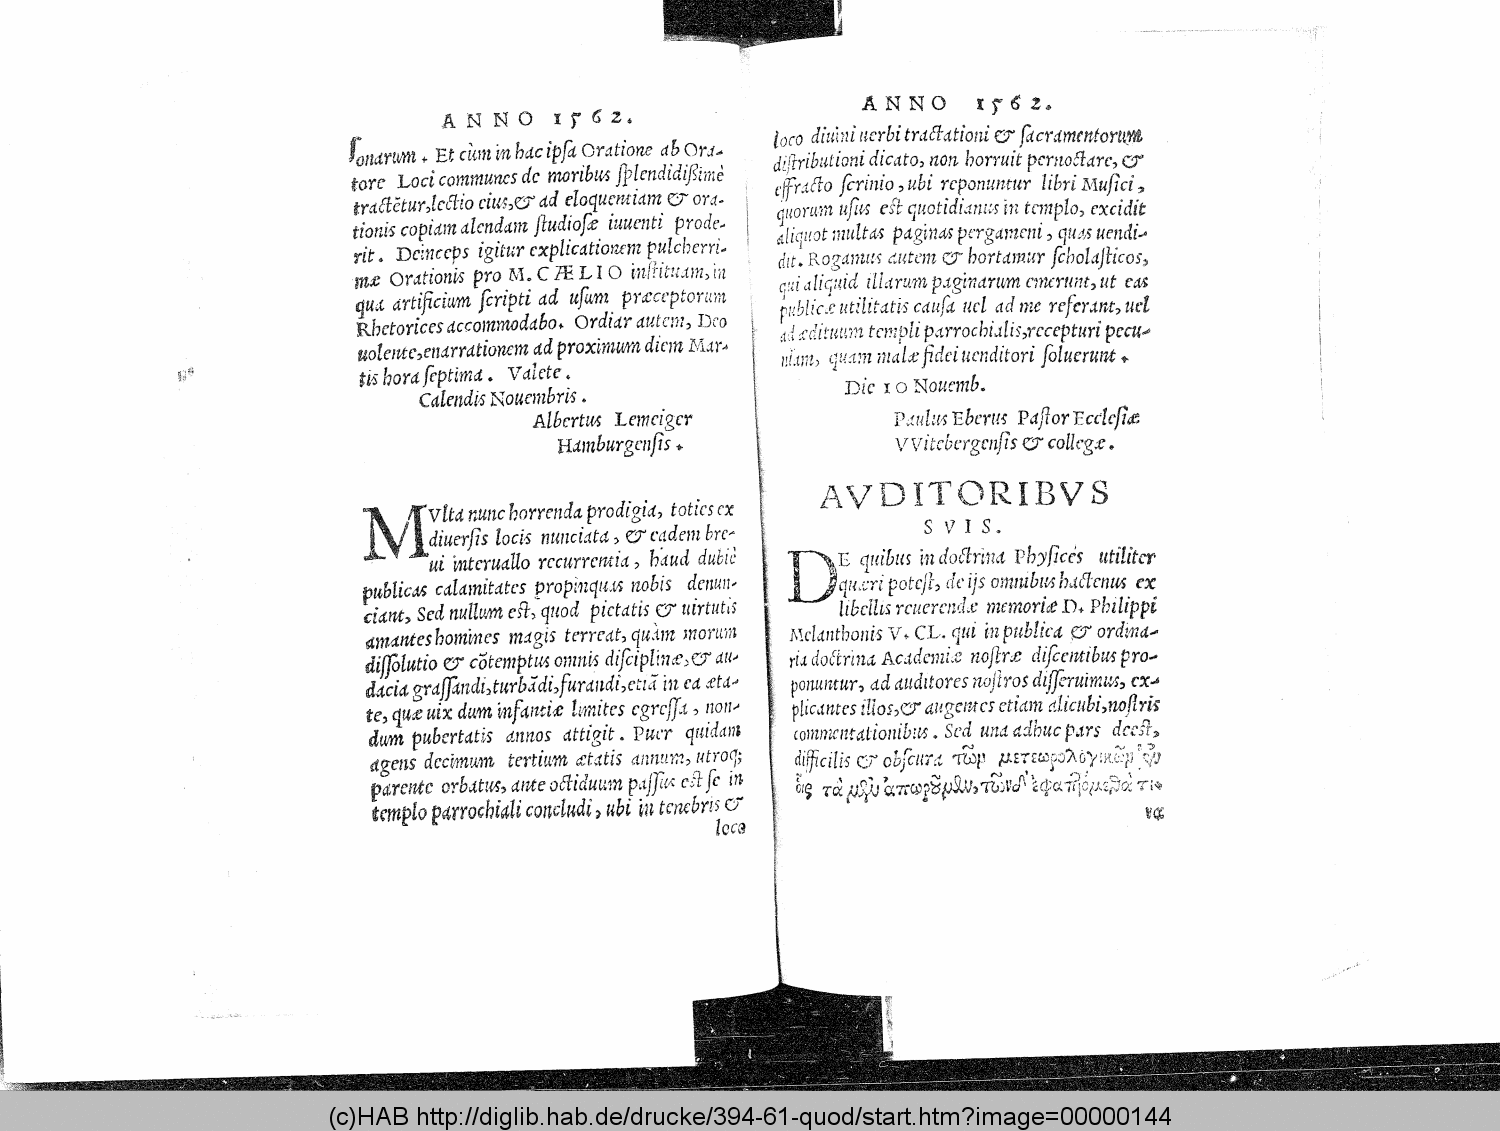 ANNO 1562.
sonarum. Et cùm in hac ipsa Oratione ab Ora-
tore Loci communes de moribus splendidißimè
tractẽtur, lectio eius, & ad eloquentiam & ora-
tionis copiam alendam studiosæ iuuenti prode-
rit. Deinceps igitur explicationem pulcherri-
mæ Orationis pro M. CÆLIO instituam, in
qua artificium scripti ad usum præceptorum
Rhetorices accommodabo. Ordiar autem, Deo
uolente, enarrationem ad proximum diem Mar-
tis hora septima. Valete.
Calendis Nouembris.
Albertus Lemeiger
Hamburgensis.
MVlta nunc horrenda prodigia, toties ex
diuersis locis nunciata, & eadem bre-
ui interuallo recurrentia, haud dubiè
publicas calamitates propinquas nobis denun-
ciant, Sed nullum est, quod pietatis & uirtutis
amantes homines magis terreat, quàm morum
dissolutio & cõtemptus omnis disciplinæ, & au-
dacia grassandi, turbãdi, furandi, etiã in ea æta-
te, quæ uix dum infantiæ limites egressa, non-
dum pubertatis annos attigit. Puer quidam
agens decimum tertium ætatis annum, utroq;
parente orbatus, ante octiduum passus est se in
templo parrochiali concludi, ubi in tenebris &
loco
ANNO 1562.
loco diuini uerbi tractationi & sacramentorum
distributioni dicato, non horruit pernoctare, &
effracto scrinio, ubi reponuntur libri Musici,
quorum usus est quotidianus in templo, excidit
aliquot multas paginas pergameni, quas uendi-
dit. Rogamus autem & hortamur scholasticos,
qui aliquid illarum paginarum emerunt, ut eas
publicæ utilitatis causa uel ad me referant, uel
ad ædituum templi parrochialis, recepturi pecu-
niam, quam malæ fidei uenditori soluerunt.
Die 10 Nouemb.
Paulus Eberus Pastor Ecclesiæ
VVitebergensis & collegæ.
AVDITORIBVS
SVIS.
DE quibus in doctrina Physices utiliter
quæri potest, de ijs omnibus hactenus ex
libellis reuerendæ memoriæ D. Philippi
Melanthonis V. CL. qui in publica & ordina-
ria doctrina Academiæ nostræ discentibus pro-
ponuntur, ad auditores nostros disseruimus, ex-
plicantes illos, & augentes etiam alicubi, nostris
commentationibus. Sed una adhuc pars deest,
difficilis & obscura τῶν μετεωρολογικῶν ἐν
οἷς τὰ μὲν ἀποροῦμεν, τῶν δ' ἐφαπτόμεθα τι-